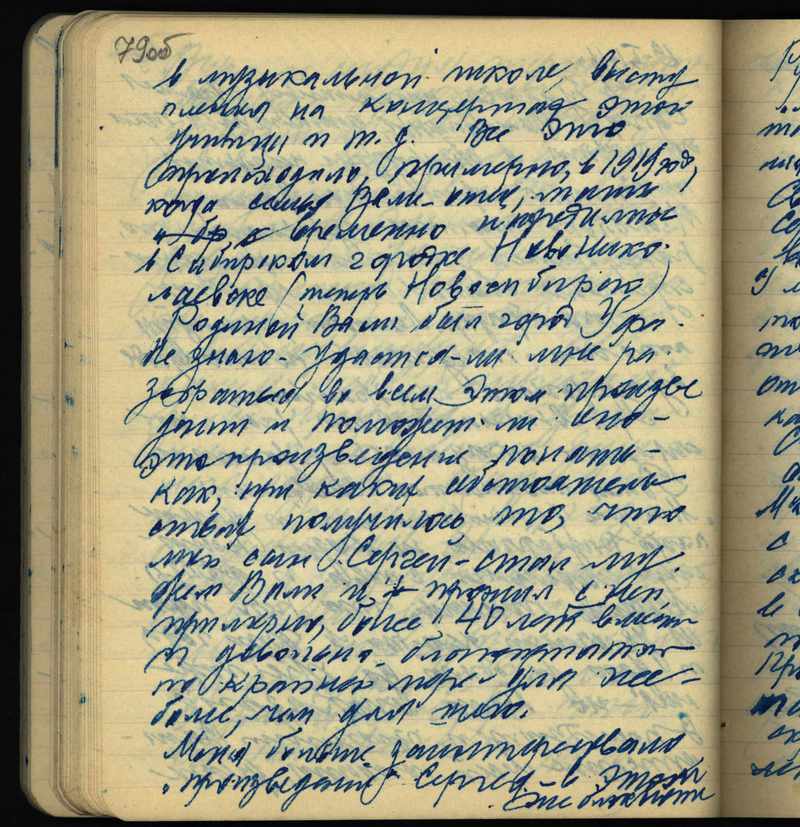 79об
в музыкальной школе, высту
пления на концертах этой
училищи и т. д. Все это
происходило, примерно, в 1919 году,
когда семья Вали - отец, мать
и бр, с временно находились
в Сибирском городке Новонико-
лаевске (теперь Новосибирск)
Родиной Вали был город Уфа.
Не знаю - удастся-ли мне ра-
зобраться во всем этом произве
дении и поможет ли оно -
это произведение понять -
как, при каких обстоятель
ствах получилось то, что
мой сын Сергей - стал му-
жем Вали и, прожил с ней,
примерно, более 40 лет вместе
и довольно благополучно
по крайней мере для нее -
более, чем для него.
Меня больше заинтересовало
"произведение" Сергея в этой
же блокноте